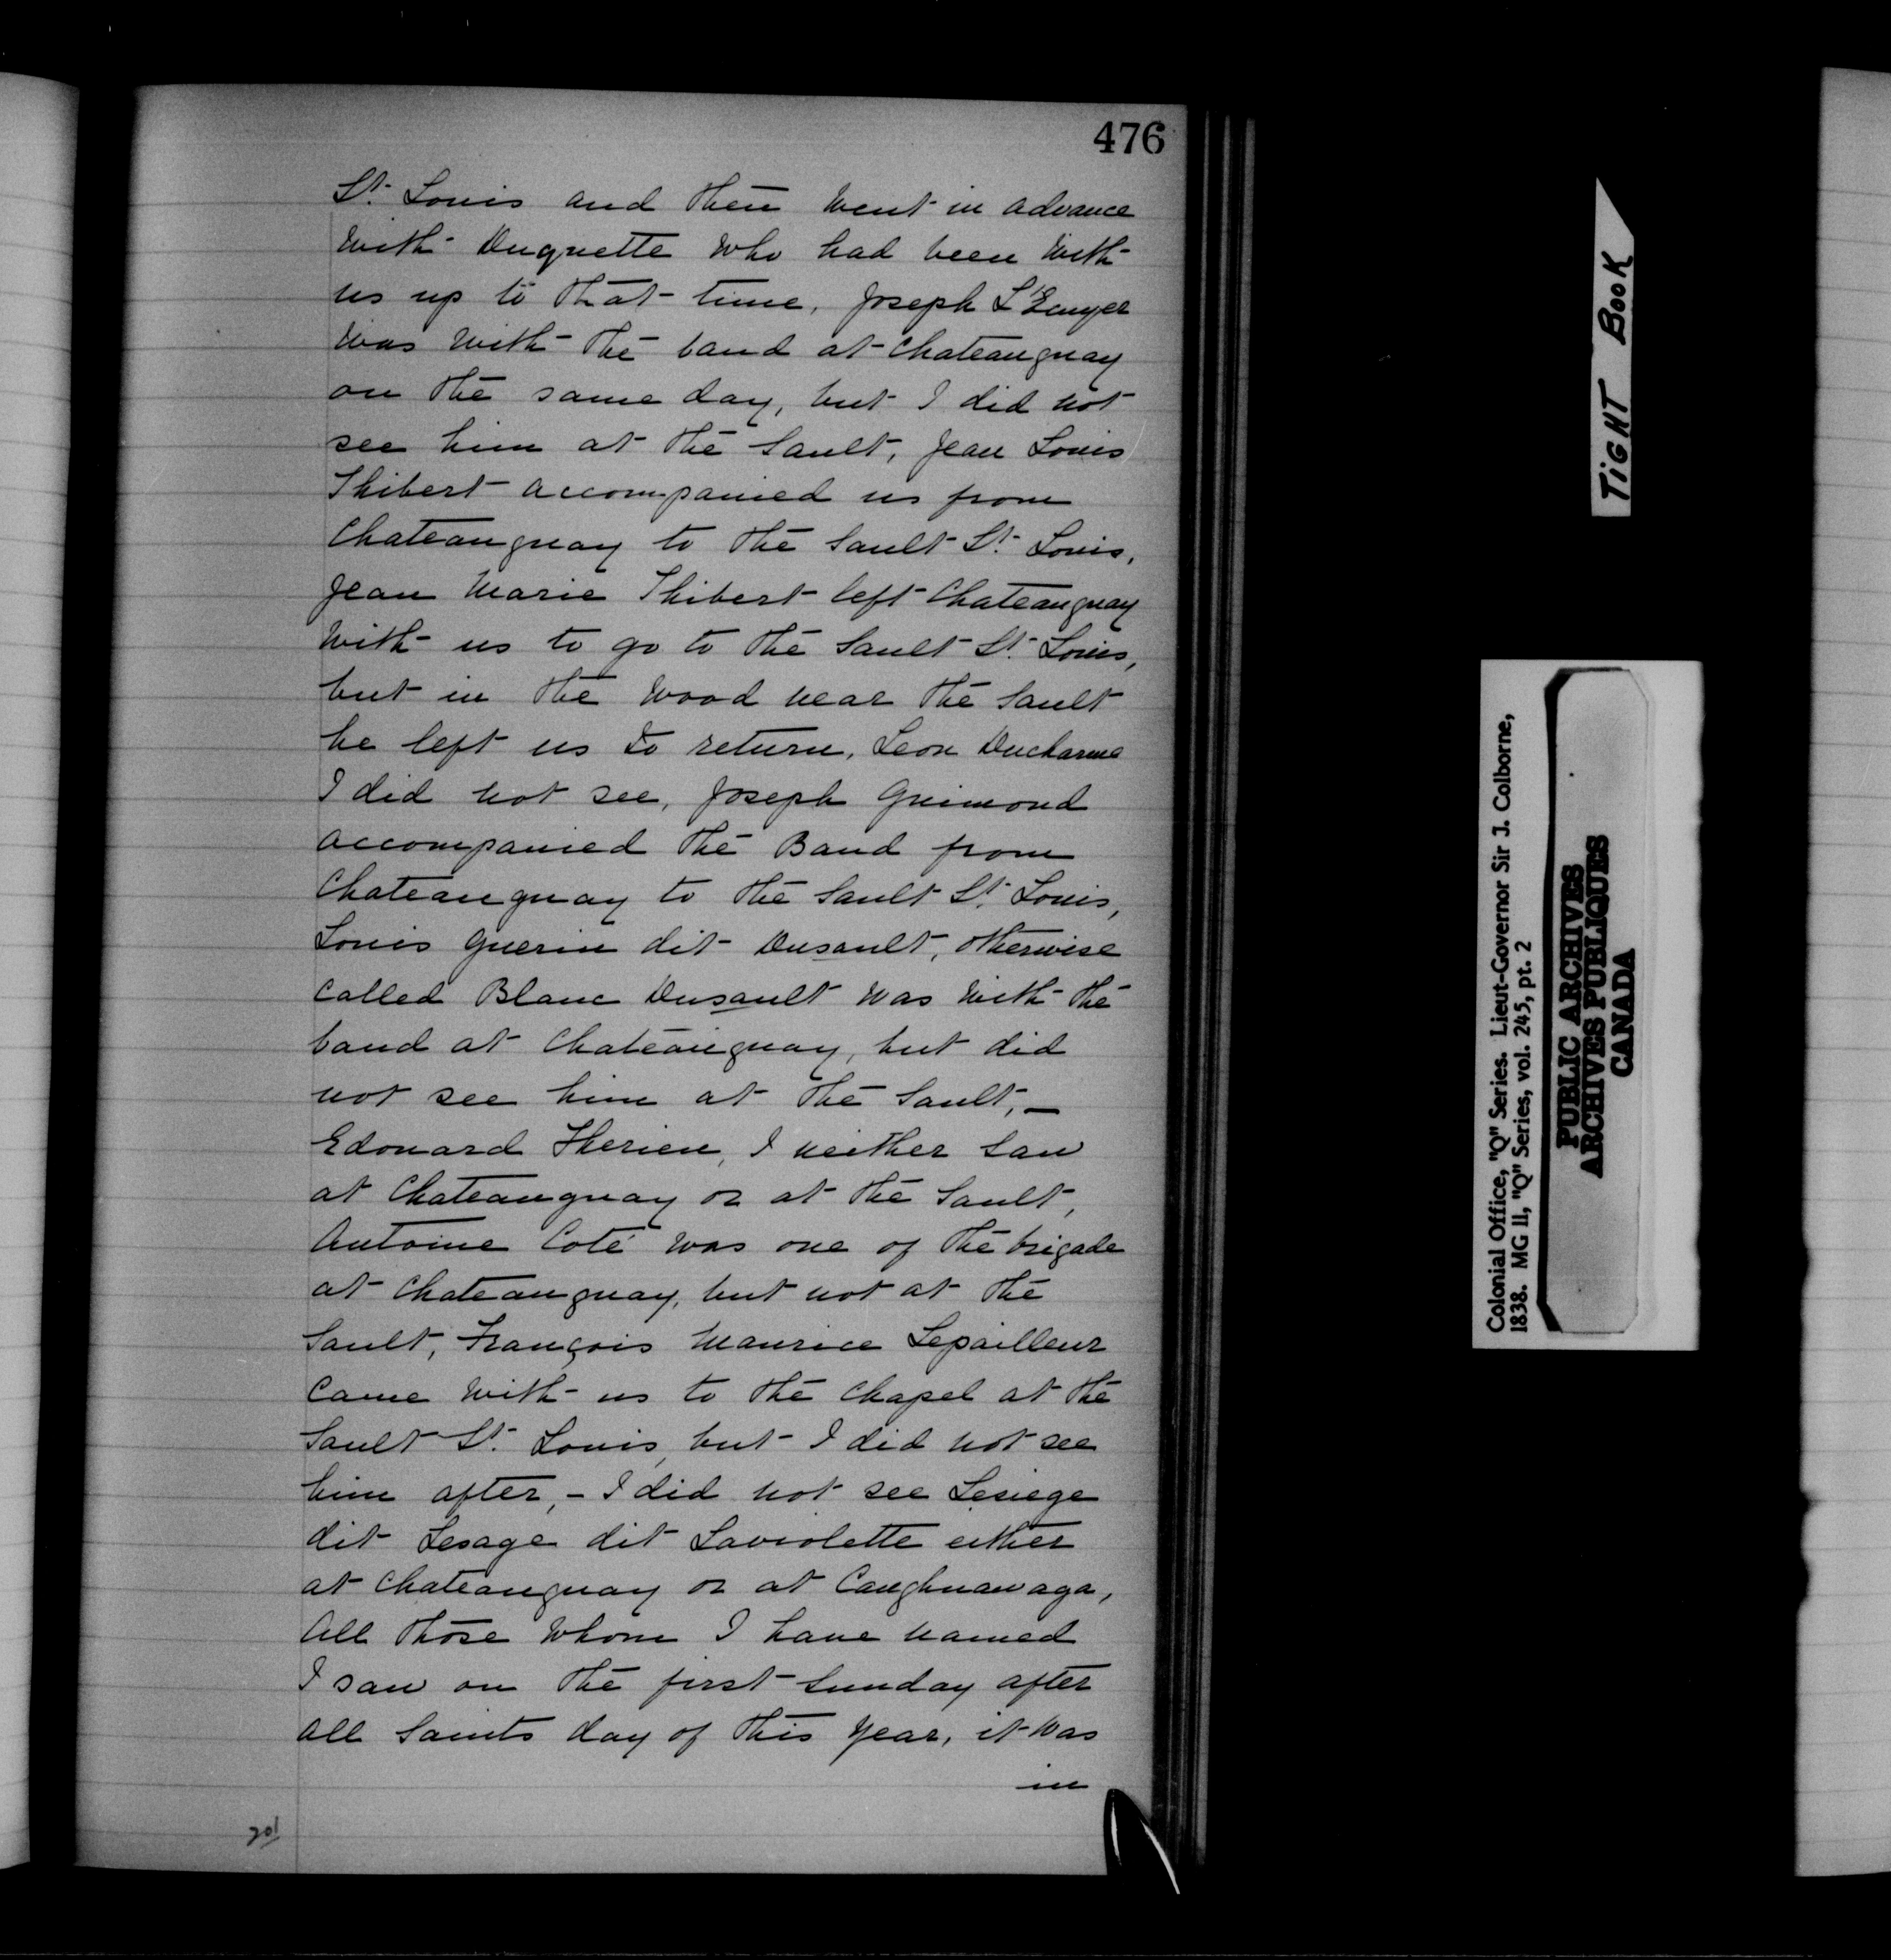 476
St. Louis and then went in advance
with Duquette who had been with
us up to that time, Joseph L'Ecuyer
was with the band at Chateauguay
on the same day, but I did not
see him at the Sault, Jean Louis
Thibert accompanied us from
Chateauguay to the Sault St. Louis,
Jean Marie Thibert left Chateauguay
with us to go to the Sault St. Louis,
but in the wood near the Sault
he left us to return, Leon Ducharme
I did not see, Joseph Grimond
accompanied the Band from
Chateauguay to the Sault St. Louis,
Louis Guerin dit Dusault, otherwise
called Blanc Dusault was with the
band at Chateauguay, but did
not see him at the Sault, —
Edouard Therien, I neither saw
at Chateauguay or at the Sault,
Antoine Coté was one of the brigade
at Chateauguay, but not at the
Sault, François Maurice Lepailleur
came with us to the Chapel at the
Sault St. Louis, but I did not see
him after, - I did not see Lesiege
dit Lesage dit Laviolette either
at Chateauguay or at Caughnawaga,
All those whom I have named
I saw on the first Sunday after
all Saints day of this year, it was
in
201
TIGHT BOOK
Colonial Office, "Q" Series. Lieut-Governor Sir J. Colborne,
1838. MG 11, "Q" Series, vol. 245, pt. 2
PUBLIC ARCHIVES
ARCHIVES PUBLIQUES
CANADA